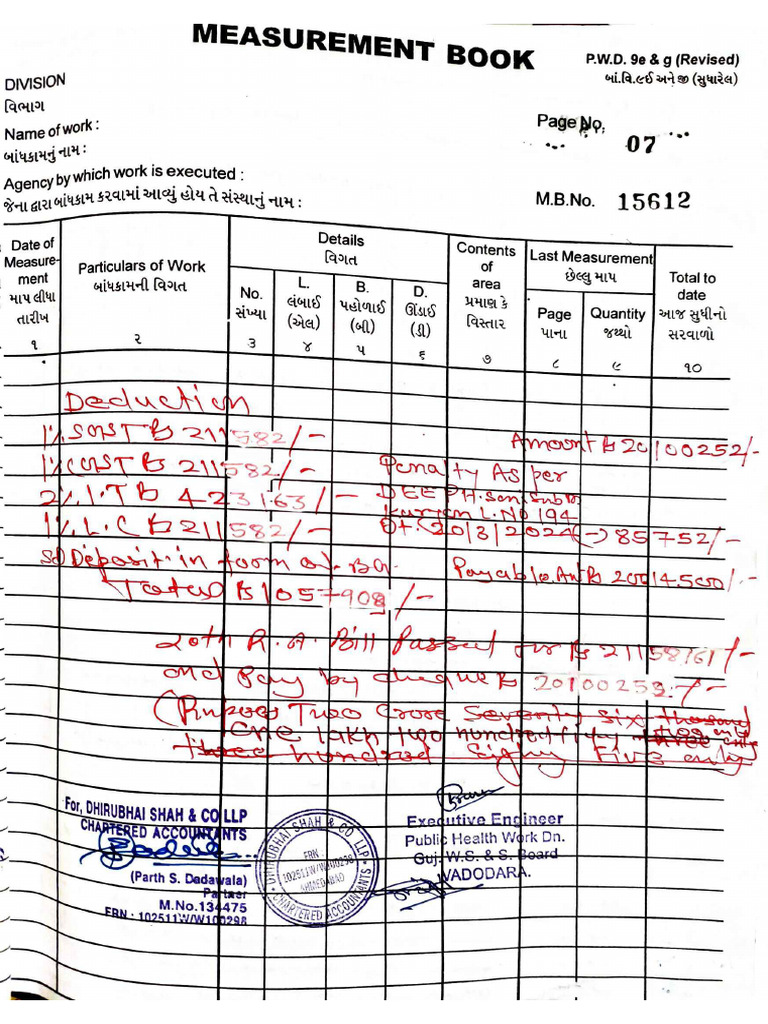 MEASUREMENT BOOK
P.W.D. 9e & g (Revised)
બાં.વિ.૯ઈ અને જી (સુધારેલ)
DIVISION
વિભાગ
Name of work :
બાંધકામનું નામ :
Page No. 07
Agency by which work is executed :
જેના દ્વારા બાંધકામ કરવામાં આવ્યું હોય તે સંસ્થાનું નામ :
M.B.No. 15612
Date of Measure-ment
માપ લીધા તારીખ
Particulars of Work
બાંધકામની વિગત
Details
વિગત
No.
સંખ્યા
L.
લંબાઈ
(એલ)
B.
પહોળાઈ
(બી)
D.
ઊંડાઈ
(ડી)
Contents of area
પ્રમાણ કે વિસ્તાર
Last Measurement
છેલ્લુ માપ
Page
પાના
Quantity
જથ્થો
Total to date
આજ સુધીનો સરવાળો
૧ ૨ ૩ ૪ ૫ ૬ ૭ ૮ ૯ ૧૦
Deduction
1% SGST ₨ 211582/-
Amount ₨ 20100252/-
1% CGST ₨ 211582/-
Penalty As per
2% I.T ₨ 423163/-
L.No 194
1% L.C ₨ 211582/-
Dt. 20/3/2024 (-) 85752/-
SD Deposit in form of BG
Payable Amt ₨ 20014500/-
Total ₨ 1057908/-
20th R.A. Bill Passed for ₨ 21158161/-
and pay by cheque ₨ 20100253/-
(Rupees Two Crore Seventy six thousand
One lakh two hundred fifty three only
three hundred Eighty Five only
For, DHIRUBHAI SHAH & CO LLP
CHARTERED ACCOUNTANTS
(Parth S. Dadawala)
Partner
M.No.134475
FRN : 102511W/W100298
DHIRUBHAI SHAH & CO LLP
FRN
102511W/W100298
AHMEDABAD
CHARTERED ACCOUNTANTS
Executive Engineer
Public Health Work Dn.
Guj. W.S. & S. Board
VADODARA.